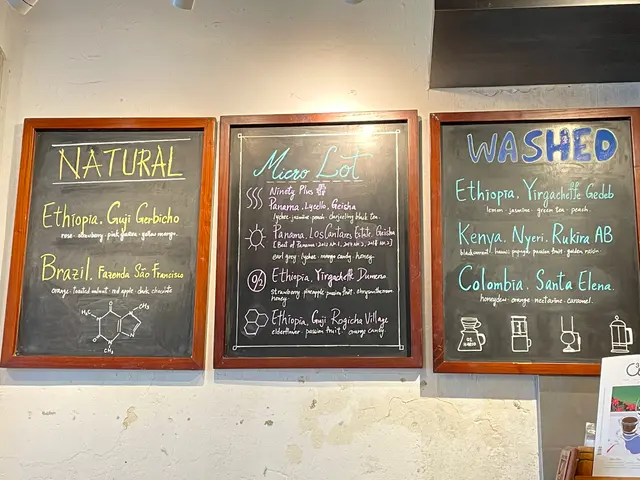 NATURAL
Ethiopia. Guji Gerbicho
rose - strawberry - pink guava - yellow mango.
Brazil. Fazenda São Francisco
orange - Toasted walnut - red apple - dark
H3C
CH3
O
N
CH3
Micro Lot
Ninety Plus
Panama. Lycello. Geisha
lychee - jasmine - peach - darjeeling black tea.
Panama. Los Cantares Estate. Geisha
[Best of Panama
earl grey - lychee - mango candy - honey.
O2
Ethiopia. Yirgacheffe
strawberry pineapple passion fruit - chrysanthemum
honey.
Ethiopia. Guji Rogicha Village
elderflower - passion fruit - orange candy
WASHED
Ethiopia. Yirgacheffe Gedeb
lemon - jasmine - green tea - peach.
Kenya. Nyeri. Rukira AB
blackcurrant - hawaii papaya - passion fruit - golden raisin
Colombia. Santa Elena.
honeydew - orange - nectarine - caramel.